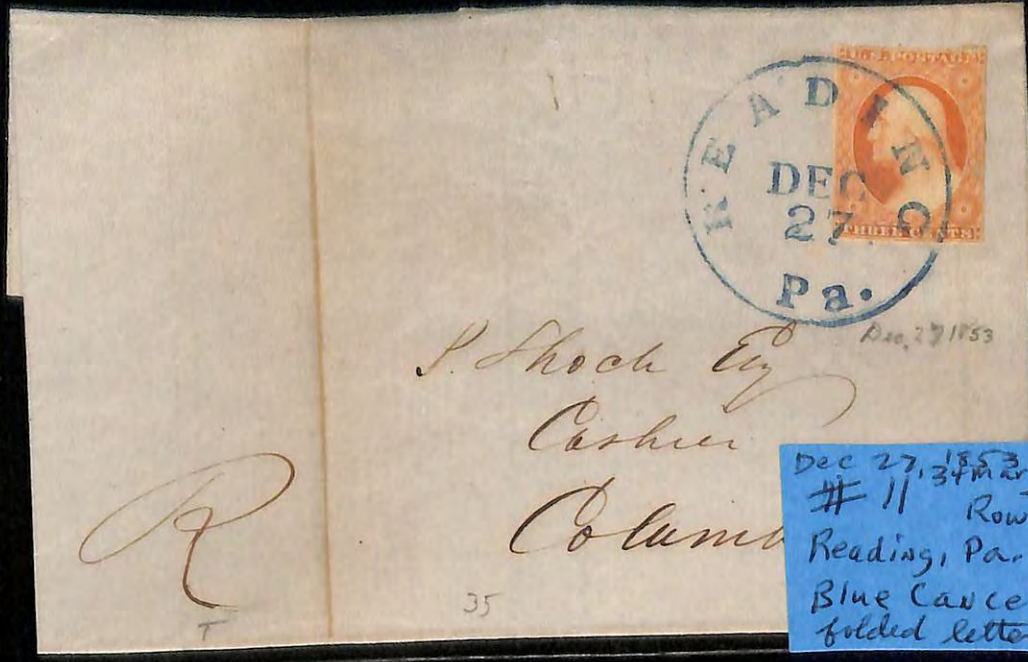 U.S. POSTAGE
THREE CENTS
READING
DEC
27
Pa.
Dec. 27 1853
S. Shoch Esq
Cashier
Columb
R
T
35
Dec 27, 1853
# 11
Row
Reading, Pa.
Blue Cance
folded lette